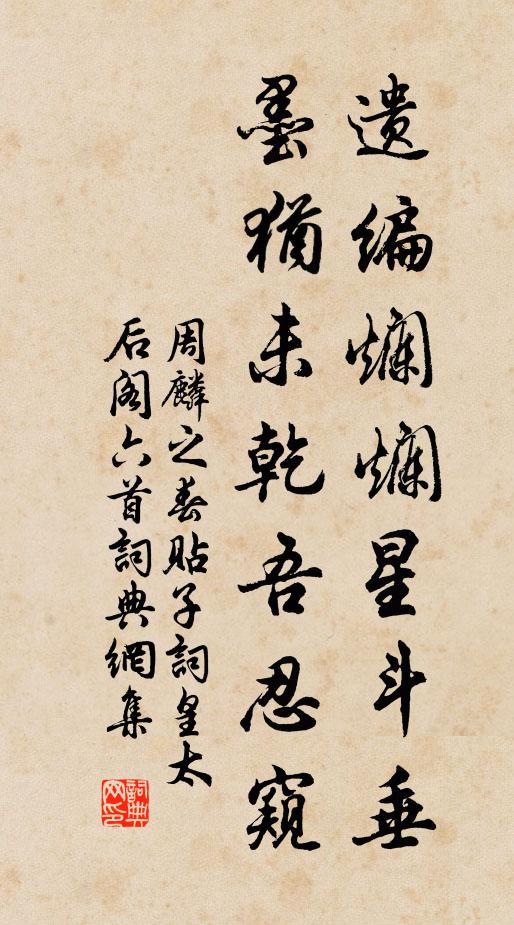 遗编烂烂星斗垂
墨犹未乾吾忍窥
周麟之春贴子词皇太
后阁六首詞典網集
詞典网印